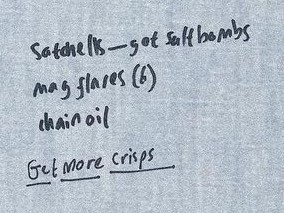 Satchells — got salt bombs
mag flares (6)
chain oil
Get more crisps